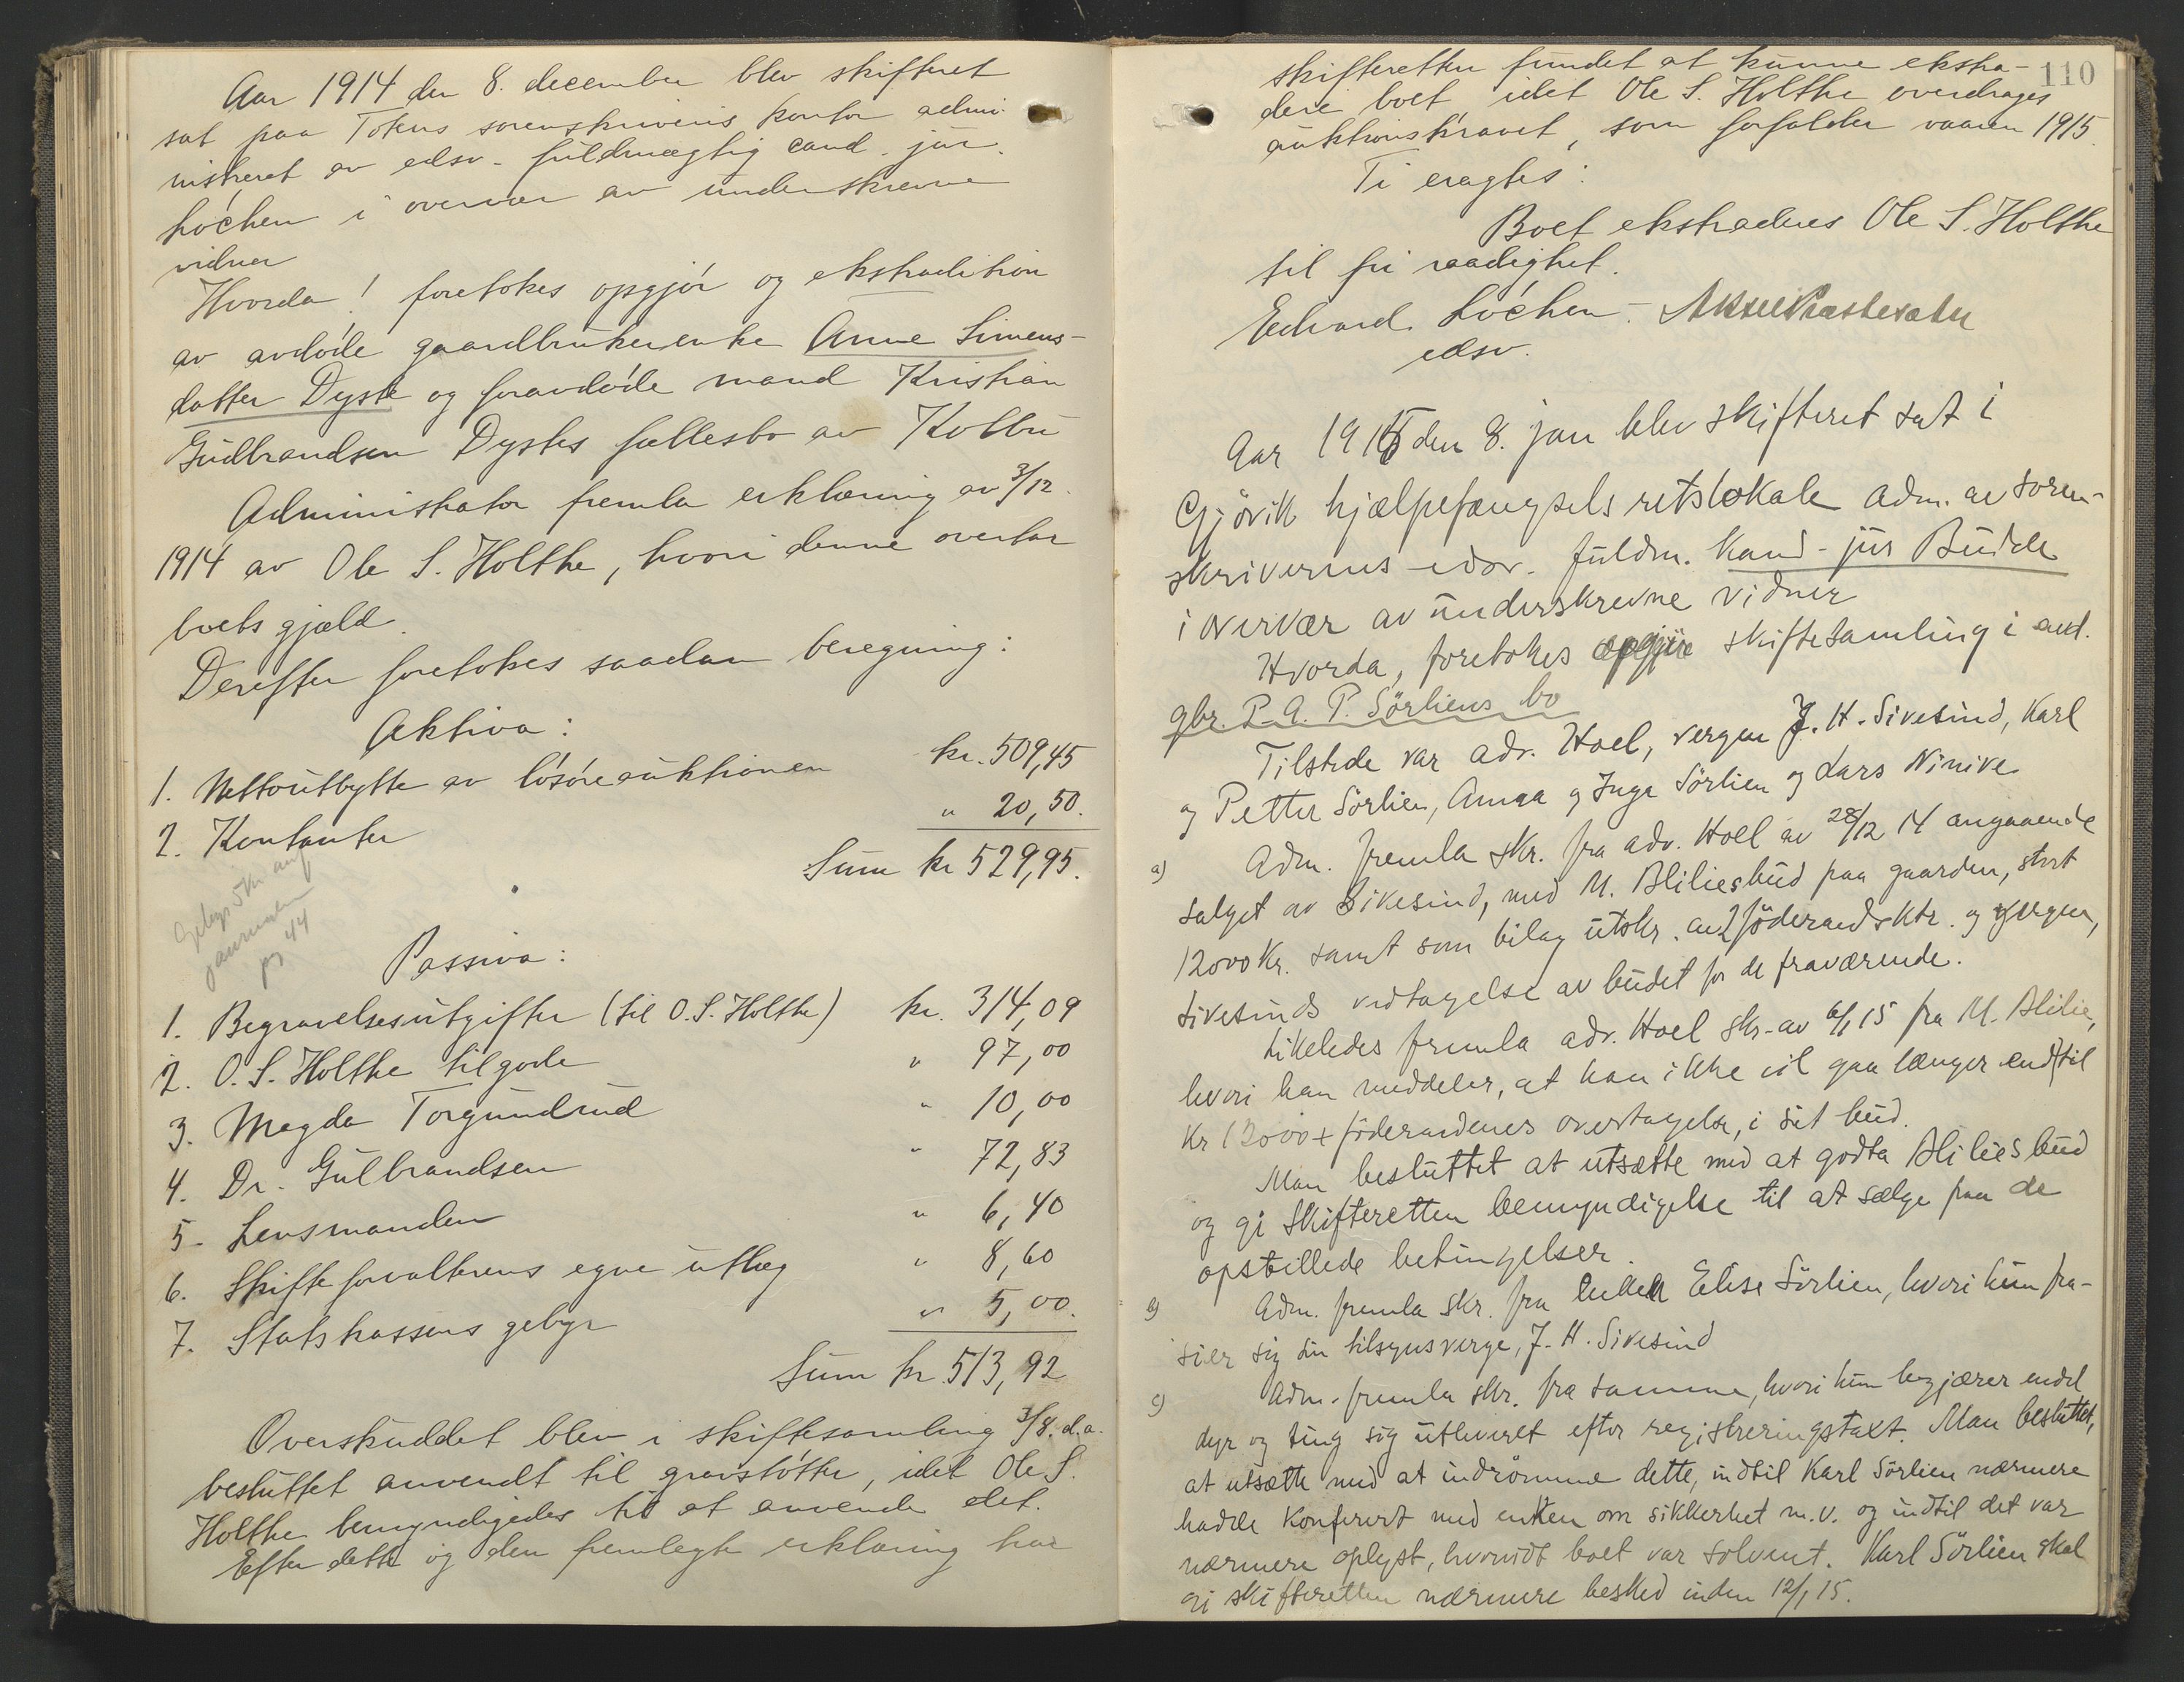 Aar 1914 den 8. december blev skifteret
sat paa Totens sorenskriveris kontor admi-
nistreret av edsv. fuldmægtig cand. jur.
Lochen i overvær av underskrevne
vidner
Hvorda! foretokes opgjør og ekstradition
av avdøde gaardbrukerenke Anne Simens-
datter Dyste og foravdøde mand Kristian
Gudbrandsen Dystes fællesbo av Kolbu
Administrator fremla erklæring av 3/12
1914 av Ole S. Holthe, hvori denne overtar
boets gjæld.
Derefter foretokes saadan beregning:
Aktiva:
1. Nettoutbytte av løsøreauktionen kr. 509,45
2. Kontanter " 20,50.
Sum kr 529,95.
pg 44
Passiva:
1. Begravelsesutgifter (til O. S. Holthe) kr. 314,09
2. O. S. Holthe tilgode " 97,00
3. Magda Torgundrud " 10,00
4. Dr. Gulbrandsen " 72,83
5. Lensmanden " 6,40
6. Skifteforvalterens egne utlæg " 8,60
7. Statskassens gebyr " 5,00.
Sum kr. 513,92
Overskuddet blev i skiftesamling 3/8. d.a.
besluttet anvendt til gravstøtte, idet Ole S.
Holthe bemyndigedes til at anvende det.
Efter dette og den fremlegte erklæring har
110
skifteretten fundet at kunne ekstra-
dere boet idet Ole S. Holthe overdrages
auktionskravet, som forfalder vaaren 1915.
Ti eragtes:
Boet ekstraderes Ole S. Holthe
til fri raadighet.
Edvard Lochen. Aksel
edsv.
Aar 1915 den 8. jan blev skifteret sat i
Gjøvik hjælpefængsels retslokale adm. av soren-
skriverens edsv. fuldm. Kand. jur Budde
i overvær av underskrevne vidner
Hvorda, foretokes opgjør skiftesamling i avd.
gbr. P. A. P. Sørliens bo
Tilstede var adv. Hoel, vergen J. H. Sivesind, Karl
og Petter Sørlien, Anna og Inga Sørlien og Lars Ninive
a) Adm. fremla skr. fra adv. Hoel av 28/12 14 angaaende
salget av Sivesind, med M. Blilies bud paa gaarden, stort
12000 Kr. samt som bilag utskr. av 2 föderaadsktr. og vergen,
Sivesinds vedtagelse av budet for de fraværende.
Likeledes fremla adv. Hoel skr. av 6/1 15 fra M. Blilie,
hvori han meddeler, at han ikke vil gaa længer end til
Kr 12000 + föderaadenes overtagelse, i sit bud.
Man besluttet at utsætte med at godta Blilies bud
og gi Skifteretten bemyndigelse til at sælge paa de
opstillede betingelser.
b) Adm. fremla skr. fra enken Elise Sörlien, hvori hun fra-
sier sig sin tilsynsverge, J. H. Sivesind
c) Adm. fremla skr. fra samme, hvori hun begjærer endel
dyr og ting sig utleveret efter registreringstaxt. Man besluttet,
at utsætte med at indrömme dette, indtil Karl Sörlien nærmere
hadde konferert med enken om sikkerhet m.v. og indtil det var
nærmere oplyst, hvorvidt boet var solvent. Karl Sörlien skal
gi skifteretten nærmere besked inden 12/1 15.